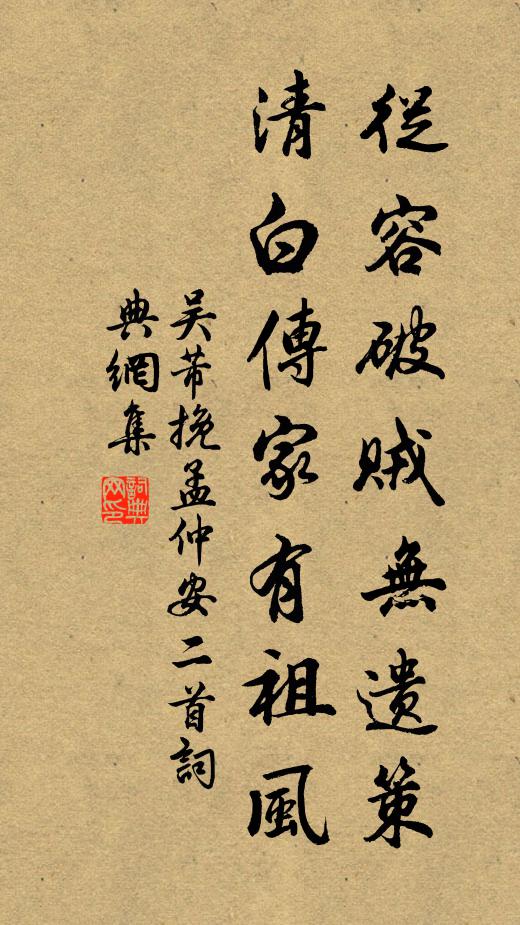 從容破賊無遺策
清白傳家有祖風
吴芾挽孟仲安二首詞
典網集
詞典網印